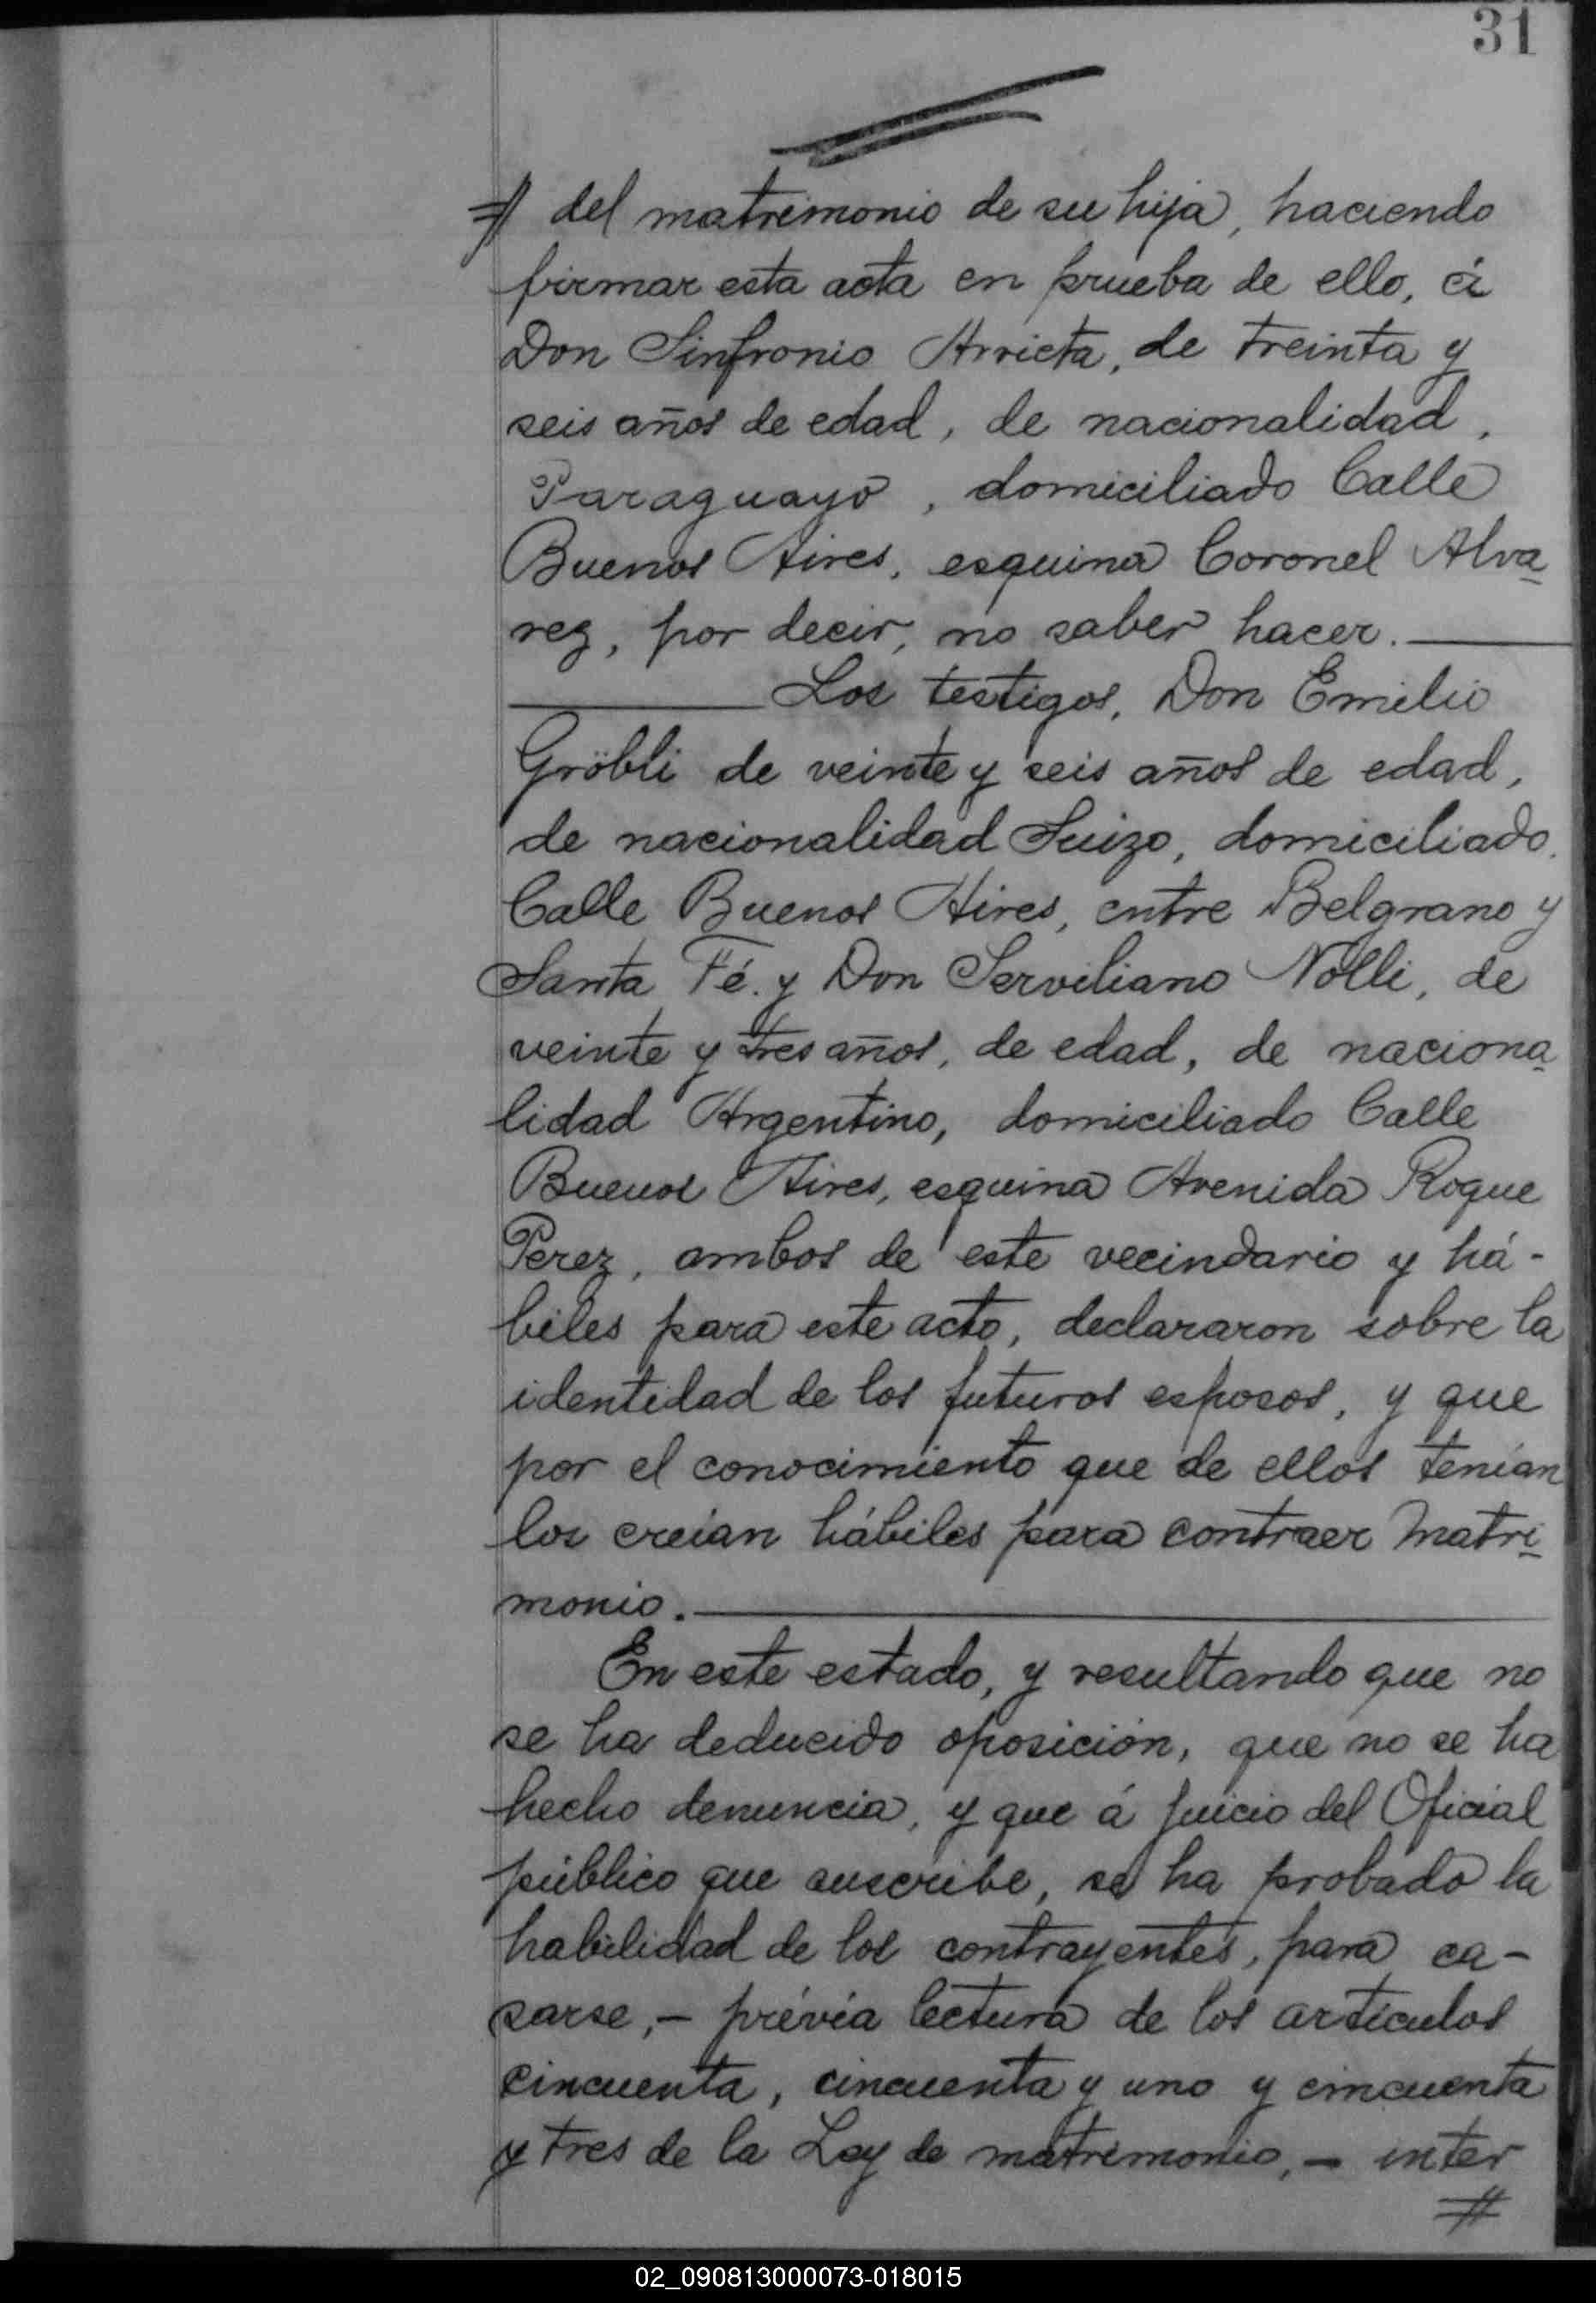 31
del matrimonio de su hija, haciendo
firmar esta acta en prueba de ello, á
Don Sinfronio Arrieta, de treinta y
seis años de edad, de nacionalidad,
Paraguayo, domiciliado Calle
Buenos Aires, esquina Coronel Alva-
rez, por decir, no saber hacer.
Los testigos, Don Emilio
Gröbli de veinte y seis años de edad,
de nacionalidad Suizo, domiciliado.
Calle Buenos Aires, entre Belgrano y
Santa Fé. y Don Serviliano Nolli, de
veinte y tres años, de edad, de naciona-
lidad Argentino, domiciliado Calle
Buenos Aires, esquina Avenida Roque
Perez, ambos de este vecindario y há-
biles para este acto, declararon sobre la
identidad de los futuros esposos, y que
por el conocimiento que de ellos tenían
los creían hábiles para contraer matri-
monio.
En este estado, y resultando que no
se ha deducido oposición, que no se ha
hecho denuncia, y que á juicio del Oficial
público que suscribe, se ha probado la
habilidad de los contrayentes, para ca-
sarse,- prévia lectura de los artículos
cincuenta, cincuenta y uno y cincuenta
y tres de la Ley de matrimonio,- inter
02_090813000073-018015